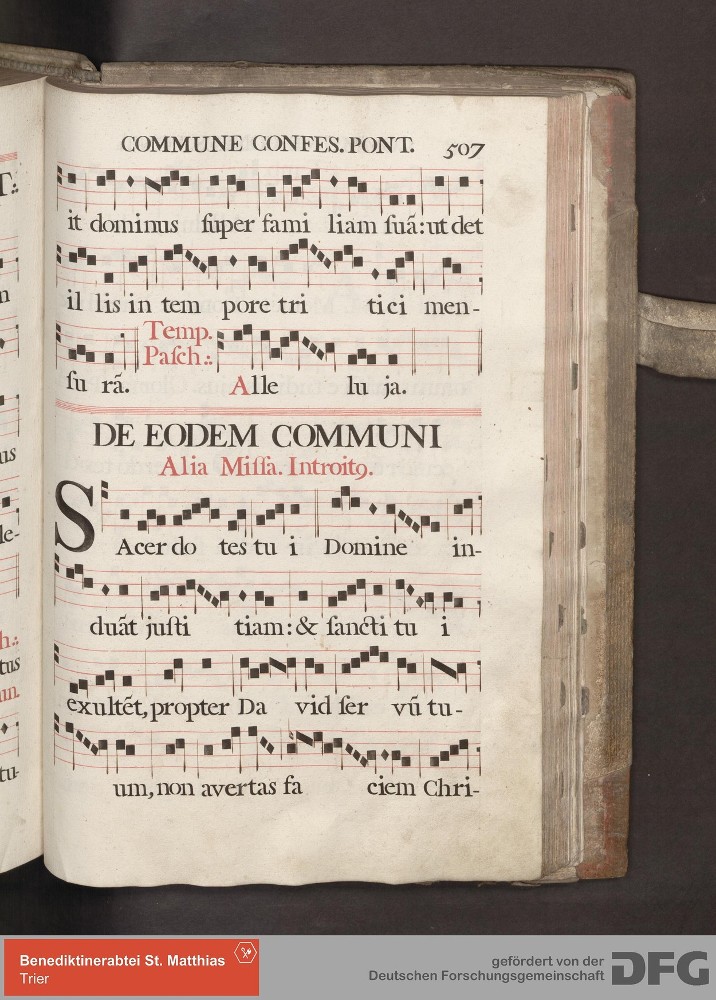 COMMUNE CONFES. PONT. 507
it dominus ſuper fami liam ſuã: ut det
il lis in tem pore tri tici men-
ſu rã. Temp. Paſch.: Alle lu ja.
DE EODEM COMMUNI
Alia Miſſa. Introitꝯ.
SAcer do tes tu i Domine in-
duãt juſti tiam: & ſancti tu i
exultẽt, propter Da vid ſer vũ tu-
um, non avertas fa ciem Chri-
T.:
n
us
le-
h.:
tus
un.
tu-
Benediktinerabtei St. Matthias
Trier
gefördert von der
Deutschen Forschungsgemeinschaft
DFG